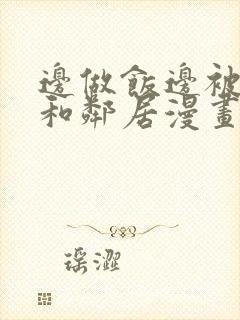 邊做飯邊被
和鄰居漫畫
瑶澀